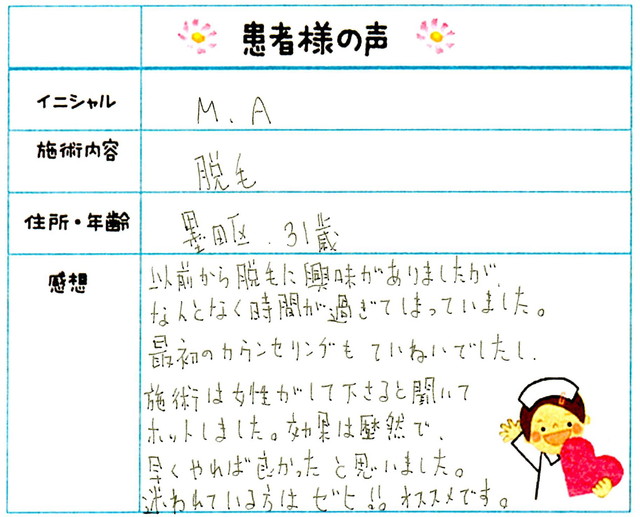 患者様の声
イニシャル M.A
施術内容 脱毛
住所・年齢 墨田区.31歳
感想
以前から脱毛に興味がありましたが、
なんとなく時間が過ぎてしまっていました。
最初のカウンセリングもていねいでしたし、
施術は女性がして下さると聞いて
ホットしました。効果は歴然で、
早くやれば良かったと思いました。
迷われている方はゼヒ!!オススメです。